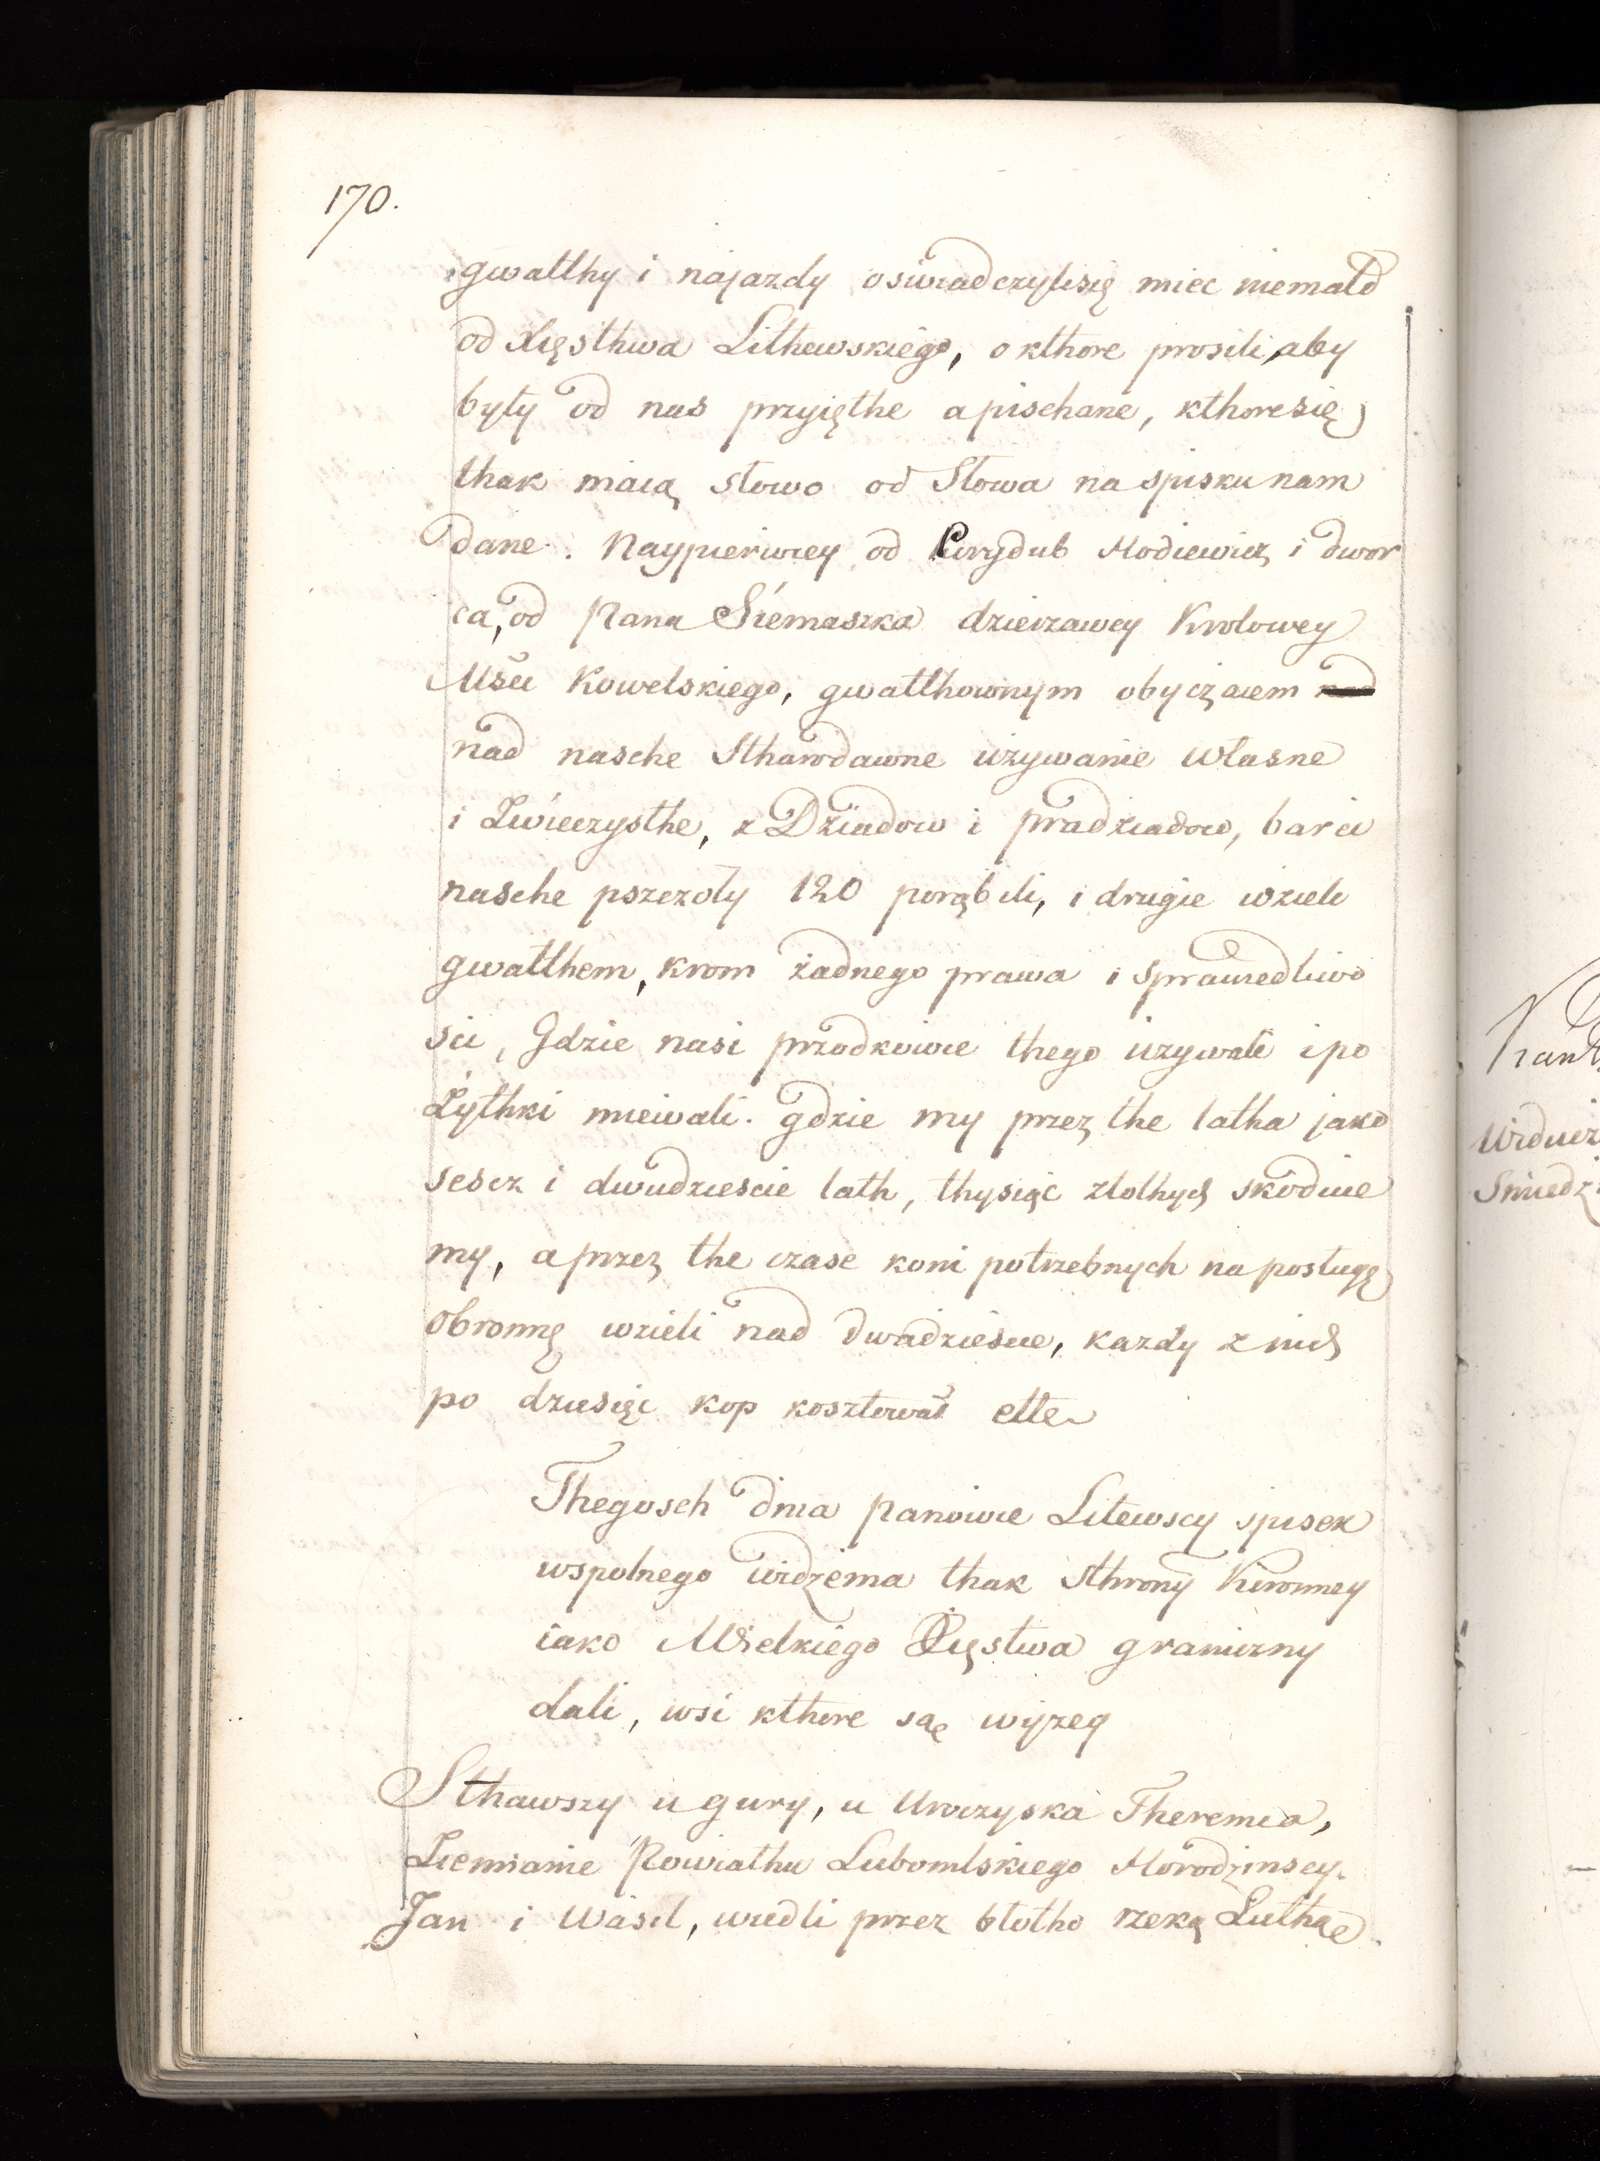 170.
gwałthy i najazdy oswiadczylisię miec niemało
od Xięsthwa Lithewskiego, o kthore prosili, aby
były od nas przyięthe a pischane, kthoresię
thak maią słowo od Słowa na spisku nam
dane. Naypierwiey od Hodiewicz i dwor
ca, od Pana Siemaszka dzierzawcy Krolowey
Kowelskiego, gwałthownym obyczaiem
nad nasche Stharodawne używanie własne
i Zwieczysthe, z Dziadow i pradziadow, barci
nasche pszczoły 120 porąbili, i drugie wzieli
gwałthem, krom żadnego prawa i sprawiedliwo
sci, Gdzie nasi przodkowie thego używali i po
żythki miewali. gdzie my przez the latha jako
sescz i dwudziescie lath, thysiąc złothych skodnie
my, a przez the czase koni potrzebnych na posługę
obronnę wzieli nad dwadziescie, kazdy z nich
po dziesięc kop kosztował ette
Thegosch dnia Panowie Litewscy spisek
wspolnego widzenia thak sthrony Koronney
iako Wielkiego Xięstwa graniczny
dali, wsi kthore są wyzey
Sthawszy u gury, u Uroczyska Theremca,
Ziemianie Powiathu Lubomlskiego Horodzinscy.
Jan i Wasil, wiedli przez błotho rzeką Luthąe
Widuiz